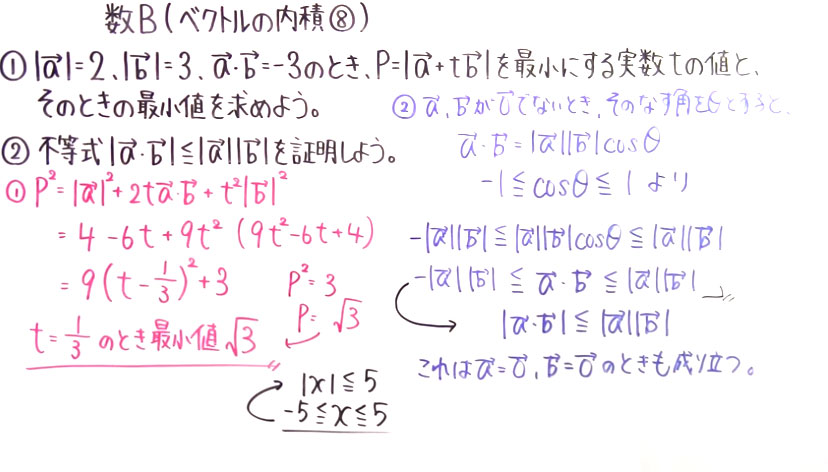 数B(ベクトルの内積⑧)
① |a⃗|=2、|b⃗|=3、a⃗・b⃗=-3のとき、P=|a⃗+tb⃗|を最小にする実数tの値と、
そのときの最小値を求めよう。
② 不等式|a⃗・b⃗|≦|a⃗||b⃗|を証明しよう。
① P²=|a⃗|²+2ta⃗・b⃗+t²|b⃗|²
= 4-6t+9t² (9t²-6t+4)
= 9(t-1/3)²+3
P²=3
P=√3
t=1/3 のとき最小値√3
|x|≦5
-5≦x≦5
② a⃗、b⃗が0⃗でないとき、そのなす角をθとすると、
a⃗・b⃗=|a⃗||b⃗|cosθ
-1≦cosθ≦1 より
-|a⃗||b⃗|≦|a⃗||b⃗|cosθ≦|a⃗||b⃗|
-|a⃗||b⃗|≦a⃗・b⃗≦|a⃗||b⃗|
|a⃗・b⃗|≦|a⃗||b⃗|
これはa⃗=0⃗、b⃗=0⃗のときも成り立つ。